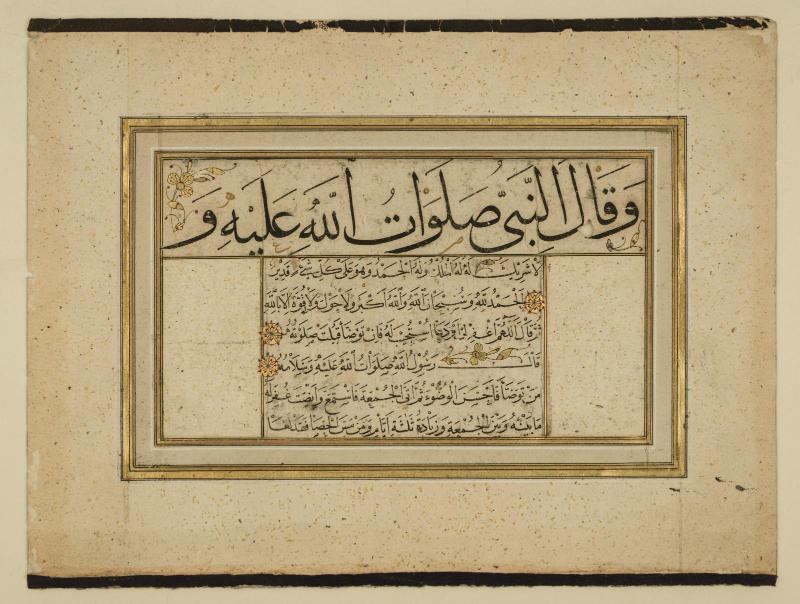 وَقَالَ النَّبِيُّ صَلَوَاتُ اللّٰهِ عَلَيْهِ وَ
لا شريك له له الملك وله الحمد وهو على كل شيء قدير
الحمد لله وسبحان الله والله أكبر ولا حول ولا قوة الا بالله
ثم قال اللهم اغفر لي او دعا استجيب له فان توضأ قبلت صلوته
قال رسول الله صلوات الله عليه وسلامه
من توضأ فاحسن الوضوء ثم اتى الجمعة فاستمع وانصت غفر له
ما بينه وبين الجمعة وزيادة ثلثة ايام ومن مس الحصا فقد لغا